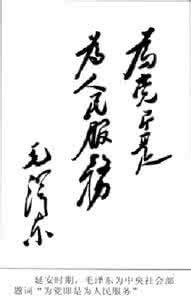 为党即是
為人民服務
毛泽东
延安时期，毛泽东为中央社会部
题词“为党即是为人民服务”